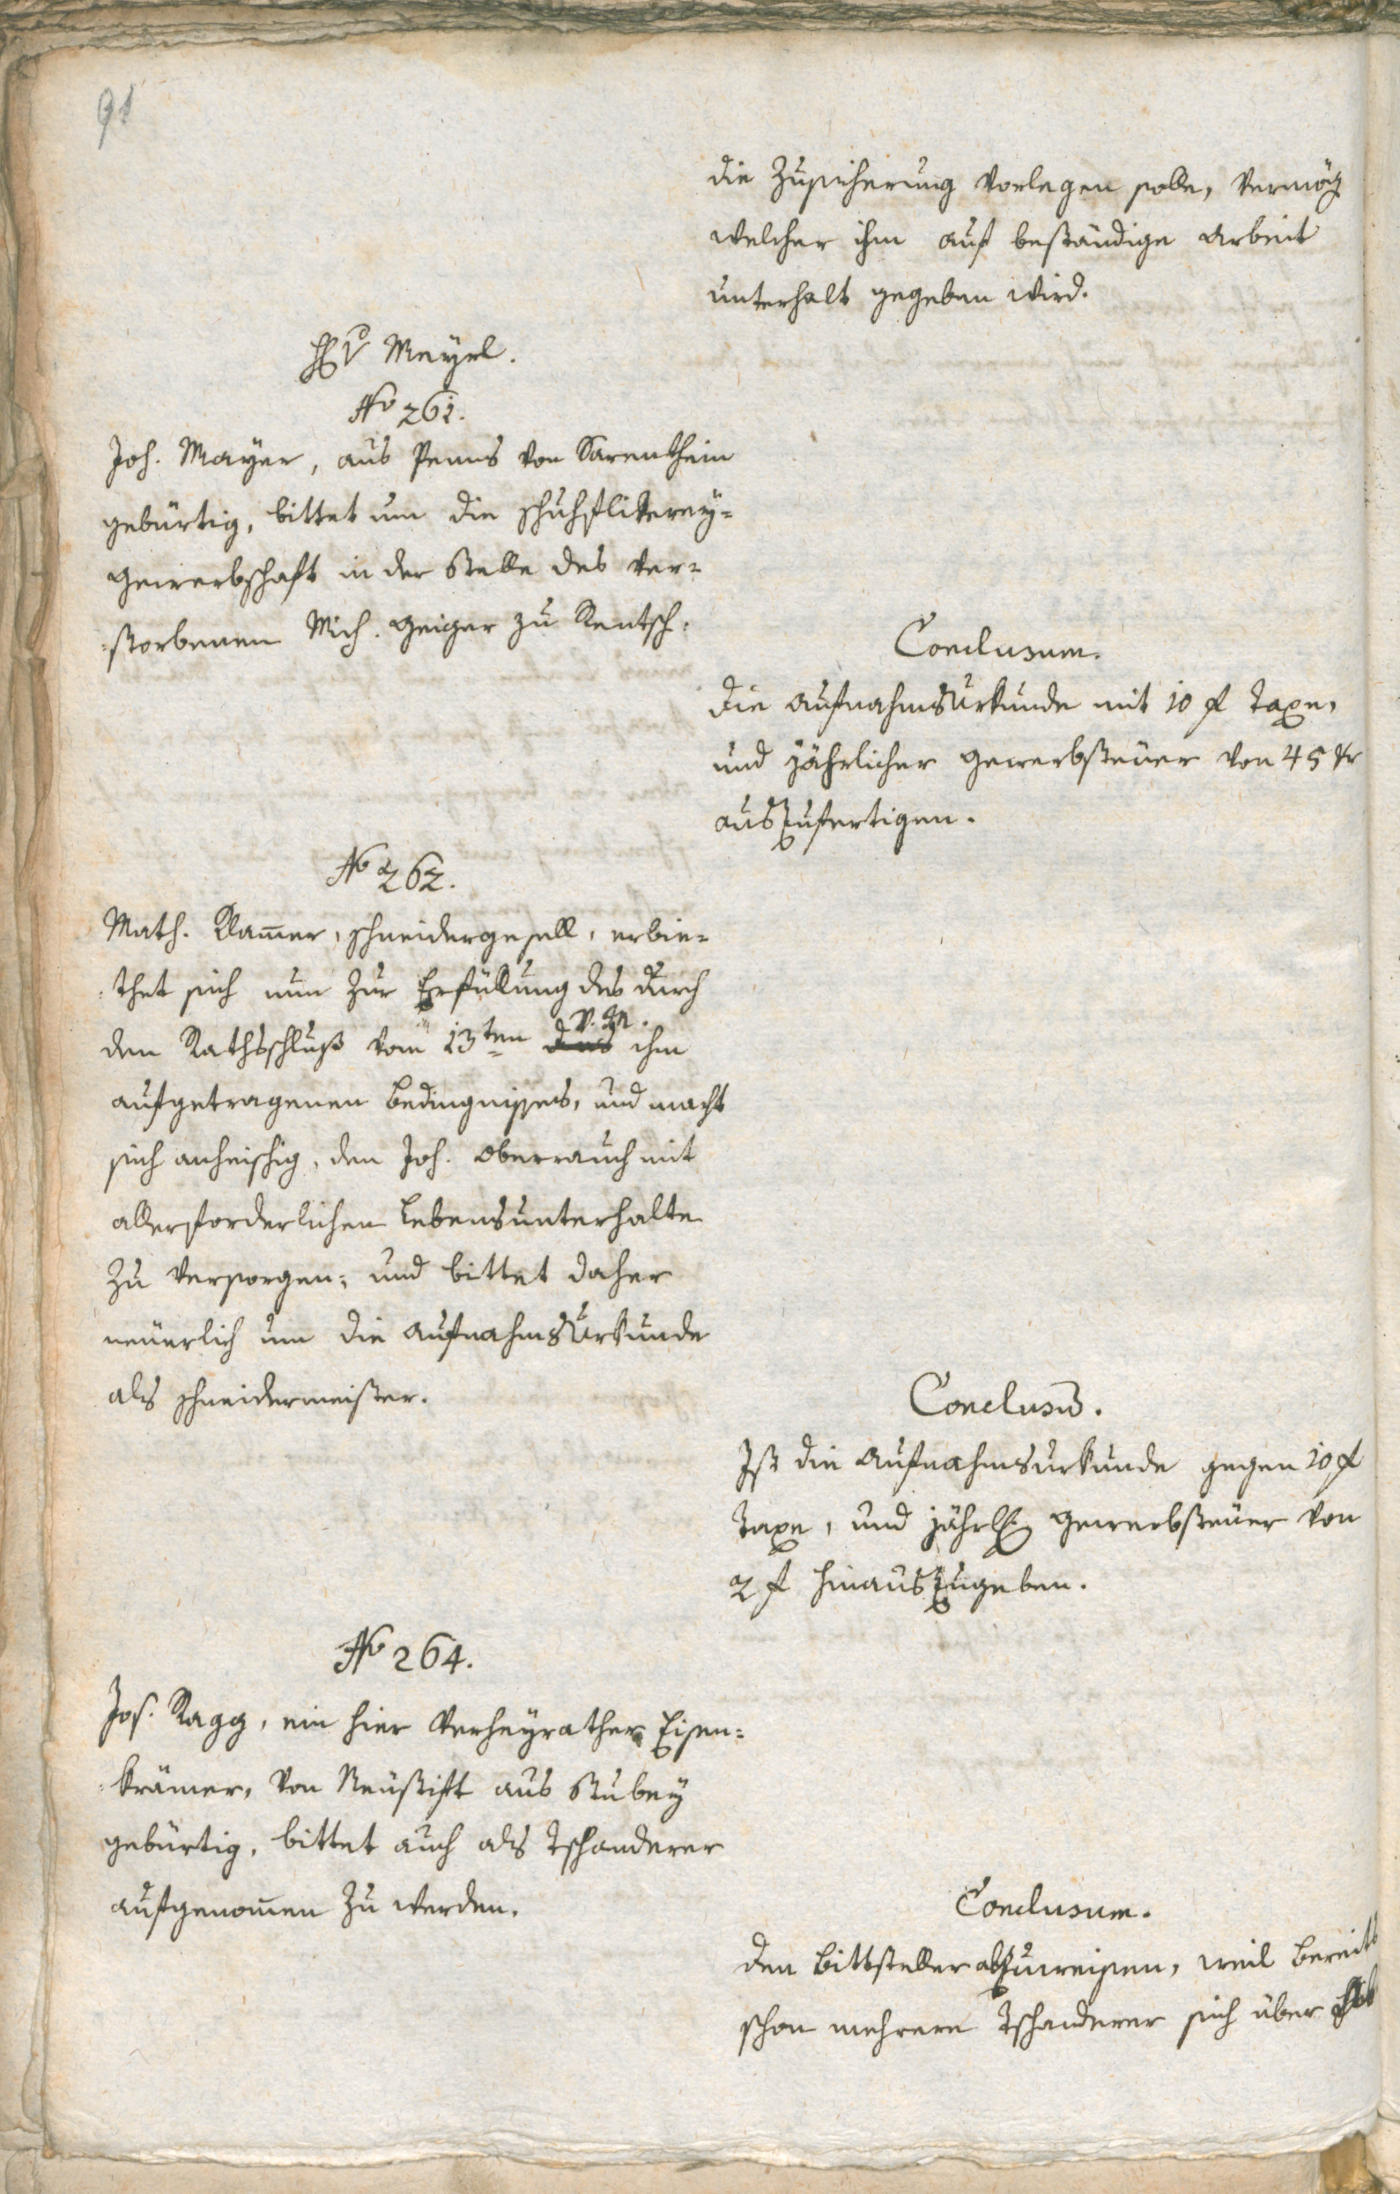 91
die Zusicherung vorlegen solle, vermög
welcher ihm auf beständige Arbeit
unterhalt gegeben wird.
Hr v Mayrl.
No 261.
Joh. Mayer, aus Penns von Sarenthein
gebürtig, bittet um die Schuhflikerey=
gewerbschaft in der Stelle des ver=
storbenen Mich. Geiger zu Rentsch.
Conclusum.
Die Aufnahmsurkunde mit 10 f Taxe,
und jährlicher Gewerbsteuer von 45 kr
auszufertigen.
No 262.
Math. Klam̄er, Schneidergesell, erbie=
thet sich nun zur Erfüllung des durch
den Rathsschluß vom 13ten v. M. ihm
aufgetragenen Bedingnisses, und macht
sich anheischig, den Joh. Oberrauch mit
allerforderlichen Lebensunterhalte
zu versorgen; und bittet daher
neuerlich um die Aufnahmsurkunde
als Schneidermeister.
Conclusū.
Ist die Aufnahmsurkunde gegen 10 f
Taxe, und jährl. Gewerbsteuer von
2 f hinauszugeben.
No 264.
Jos. Ragg, ein hier verheyrather Eisen=
krämer, von Neustift aus Stubey
gebürtig, bittet auch als Tschanderer
aufgenom̄en zu werden.
Conclusum.
Den Bittsteller abzuweisen, weil bereits
schon mehrere Tschanderer sich über